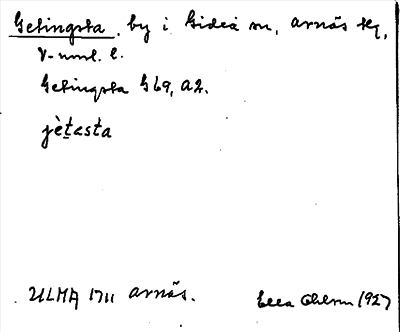 Getingsta, by i Gideå sn, Arnäs tg,
V-nml. l.
Getingsta G69, A2.
jètɛsta
ULMA 1711 Arnäs. Ella Ohlson 1927